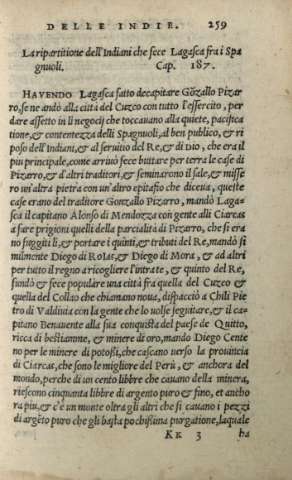 DELLE INDIE. 259
La ripartitione dell'Indiani che fece Lagasca fra i Spa
gnuoli. Cap. 187.
HAVENDO Lagasca fatto decapitare Gōzallo Pizar
ro, se ne andò alla città del Cuzco con tutto l'essercito, per
dare assetto in li negocij che toccauano alla quiete, pacifica
tione, & contentezza delli Spagnuoli, al ben publico, & ri
poso dell'Indiani, & al seruitio del Re, & di Dio, che era il
piu principale, come arriuò fece buttare per terra le case di
Pizarro, & d'altri traditori, & seminarono il sale, & misse
ro un'altra pietra con un'altro epitafio che diceua, queste
case erano del traditore Gonzallo Pizarro, mandò Laga-
sca il capitano Alonso di Mendozza con gente alli Ciarcas
a fare prigioni quelli della parcialità di Pizarro, che si era
no fuggiti lì, & portare i quinti, & tributi del Re, mandò si
milmente Diego di Roias, & Diego di Mora, & ad altri
per tutto il regno a ricogliere l'intrate, & quinto del Re,
fundò & fece populare una città fra quella del Cuzco &
quella del Collao che chianano noua, dispacciò a Chili Pie
tro di Valdiuia con la gente che lo uolse seguitare, & il ca-
pitano Benauente alla sua conquista del paese de Quitto,
ricca di bestiamme, & minere di oro, mandò Diego Cente
no per le minere di potossi, che cascano uerso la prouincia
di Ciarcas, che sono le migliore del Perù, & anchora del
mondo, perche di un cento libbre che cauano della minera,
riescono cinquanta libbre di argento puro & fino, et ancho
ra piu, & c'è un monte oltra gli altri che si cauano i pezzi
di argēto puro che gli basta pochissima purgatione, laquale
KK 3 ha